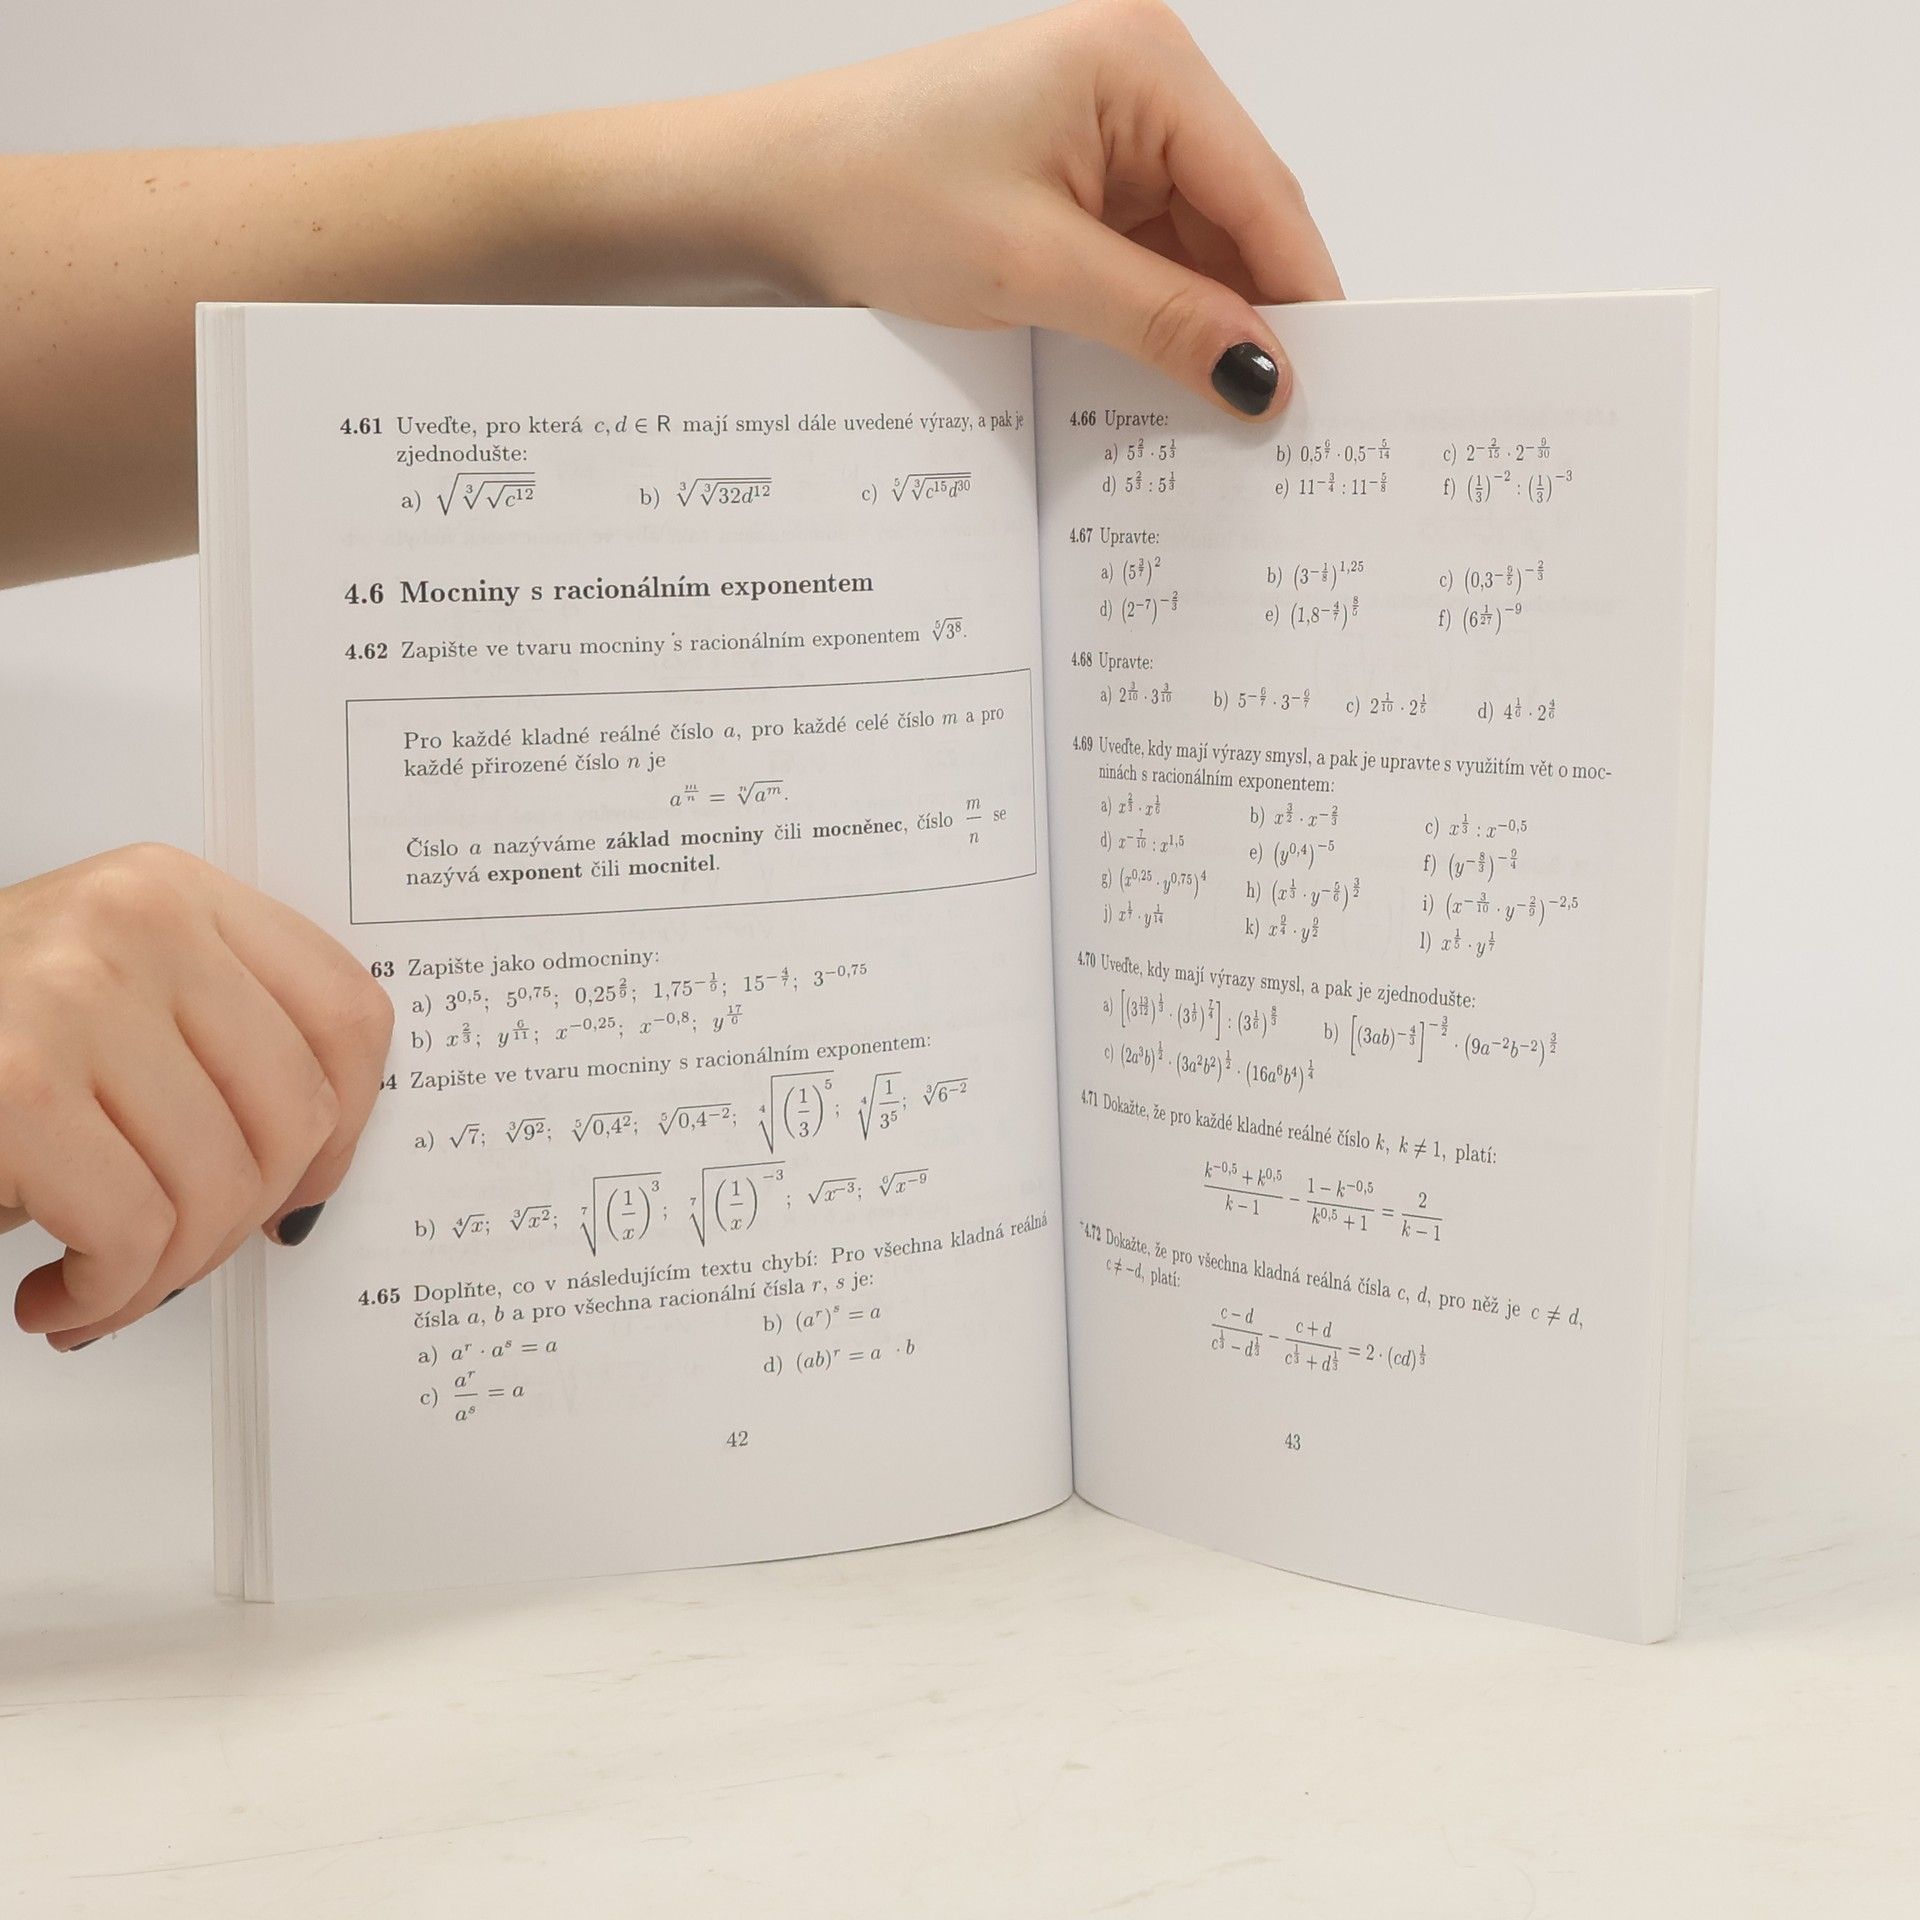 4.61 Uveďte, pro která c, d ∈ R mají smysl dále uvedené výrazy, a pak je
zjednodušte:
a) √(∛(√(c¹²))) b) ∛(∛(32d¹²)) c) ⁵√(∛(c¹⁵d³⁰))
4.6 Mocniny s racionálním exponentem
4.62 Zapište ve tvaru mocniny s racionálním exponentem ⁵√(3⁸).
Pro každé kladné reálné číslo a, pro každé celé číslo m a pro
každé přirozené číslo n je
a^(m/n) = ⁿ√(a^m).
Číslo a nazýváme základ mocniny čili mocněnec, číslo m/n se
nazývá exponent čili mocnitel.
63 Zapište jako odmocniny:
a) 3^(0,5); 5^(0,75); 0,25^(2/9); 1,75^(-1/9); 15^(-4/7); 3^(-0,75)
b) x^(2/3); y^(6/11); x^(-0,25); x^(-0,8); y^(17/6)
4 Zapište ve tvaru mocniny s racionálním exponentem:
a) √7; ∛(9²); ⁵√(0,4²); ⁵√(0,4⁻²); ⁴√((1/3)⁵); ⁴√(1/3⁵); ∛(6⁻²)
b) ⁴√x; ∛(x²); ⁷√((1/x)³); ⁷√((1/x)⁻³); √(x⁻³); ⁶√(x⁻⁹)
4.65 Doplňte, co v následujícím textu chybí: Pro všechna kladná reálná
čísla a, b a pro všechna racionální čísla r, s je:
a) a^r · a^s = a b) (a^r)^s = a
c) a^r/a^s = a d) (ab)^r = a · b
42
4.66 Upravte:
a) 5^(2/3) · 5^(1/3) b) 0,5^(6/7) · 0,5^(-5/14) c) 2^(-2/15) · 2^(-9/30)
d) 5^(2/3) : 5^(1/3) e) 11^(-3/4) : 11^(-5/8) f) (1/3)⁻² : (1/3)⁻³
4.67 Upravte:
a) (5^(3/7))² b) (3^(-1/8))^(1,25) c) (0,3^(-9/5))^(-2/3)
d) (2⁻⁷)^(-2/3) e) (1,8^(-4/7))^(8/5) f) (6^(1/27))⁻⁹
4.68 Upravte:
a) 2^(3/10) · 3^(3/10) b) 5^(-6/7) · 3^(-6/7) c) 2^(1/10) · 2^(1/5) d) 4^(1/6) · 2^(4/6)
4.69 Uveďte, kdy mají výrazy smysl, a pak je upravte s využitím vět o moc-
ninách s racionálním exponentem:
a) x^(2/3) · x^(1/6) b) x^(3/2) · x^(-2/3) c) x^(1/3) : x^(-0,5)
d) x^(-7/10) : x^(1,5) e) (y^(0,4))⁻⁵ f) (y^(-8/3))^(-9/4)
g) (x^(0,25) · y^(0,75))⁴ h) (x^(1/3) · y^(-5/6))^(3/2) i) (x^(-3/10) · y^(-2/9))^(-2,5)
j) x^(1/7) · y^(1/14) k) x^(9/4) · y^(9/2) l) x^(1/5) · y^(1/7)
4.70 Uveďte, kdy mají výrazy smysl, a pak je zjednodušte:
a) [(3^(13/12))^(1/3) · (3^(1/9))^(7/4)] : (3^(1/6))^(8/3) b) [(3ab)^(-4/3)]^(-3/2) · (9a⁻²b⁻²)^(3/2)
c) (2a³b)^(1/2) · (3a²b²)^(1/2) · (16a⁶b⁴)^(1/4)
4.71 Dokažte, že pro každé kladné reálné číslo k, k ≠ 1, platí:
(k^(-0,5) + k^(0,5))/(k − 1) − (1 − k^(-0,5))/(k^(0,5) + 1) = 2/(k − 1)
*4.72 Dokažte, že pro všechna kladná reálná čísla c, d, pro něž je c ≠ d,
c ≠ −d, platí:
(c − d)/(c^(1/3) − d^(1/3)) − (c + d)/(c^(1/3) + d^(1/3)) = 2 · (cd)^(1/3)
43